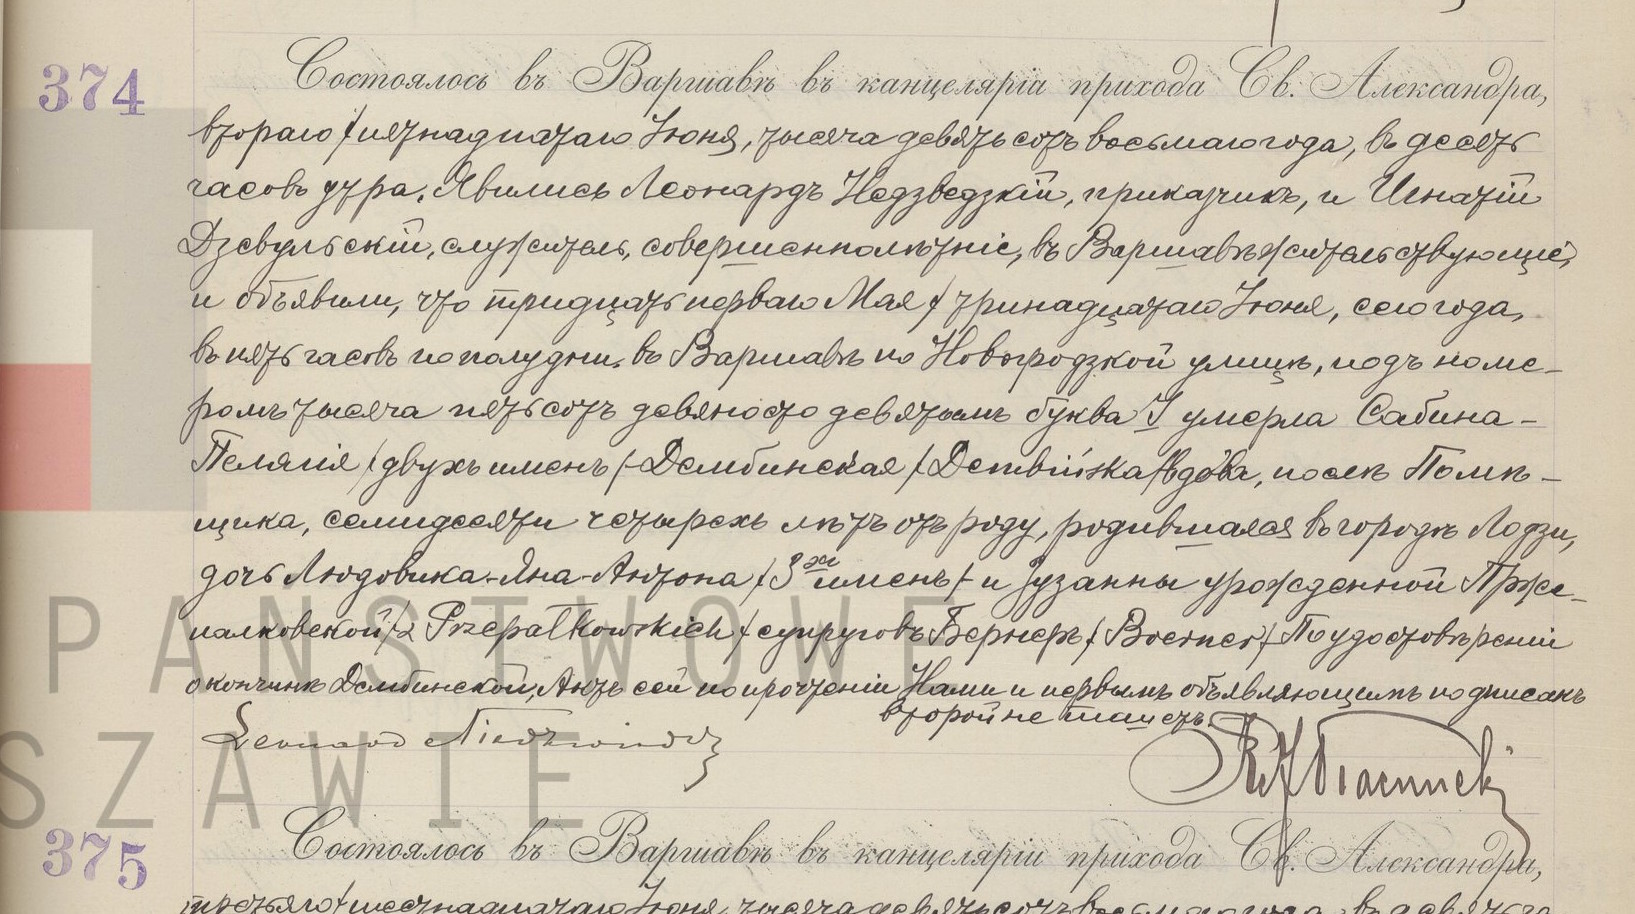 374
Состоялось въ Варшавѣ въ канцеляріи прихода Св. Александра,
втораго /пятнадцатаго Іюня, тысяча девятьсотъ восьмаго года, въ десять
часовъ утра. Явились Леонардъ Недзведзкій, приказчикъ, и Игнатій
Дзевульскій, служитель, совершеннолѣтніе, въ Варшавѣ жительствующіе,
и объявили, что тридцать перваго Мая / тринадцатаго Іюня, сего года,
въ пять часовъ пополудни, въ Варшавѣ по Новогродзкой улицѣ, подъ номе-
ромъ тысяча пятьсотъ девяносто девятымъ буква І умерла Сабина-
Пелягія /двухъ именъ/- Дембинская / Dembińska / вдова, послѣ Помѣ-
щика, семидесяти четырехъ лѣтъ отъ роду, родившаяся въ городѣ Лодзи,
дочь Людовика-Яна-Антона /3хъ именъ/- и Зузанны урожденной Прже-
палковской /z Przepałkowskich/ супруговъ Бернеръ / Boerner / По удостовѣреніи
о кончинѣ Дембинской, Актъ сей по прочтеніи Нами и первымъ объявляющимъ подписанъ
второй не пишетъ.
Leonard Niedzwiedzz
375
Состоялось въ Варшавѣ въ канцеляріи прихода Св. Александра,
третьяго/шестнадцатаго Іюня, тысяча девятьсотъ восьмаго года, въ девять
PAŃSTWOWE
SZAWIE